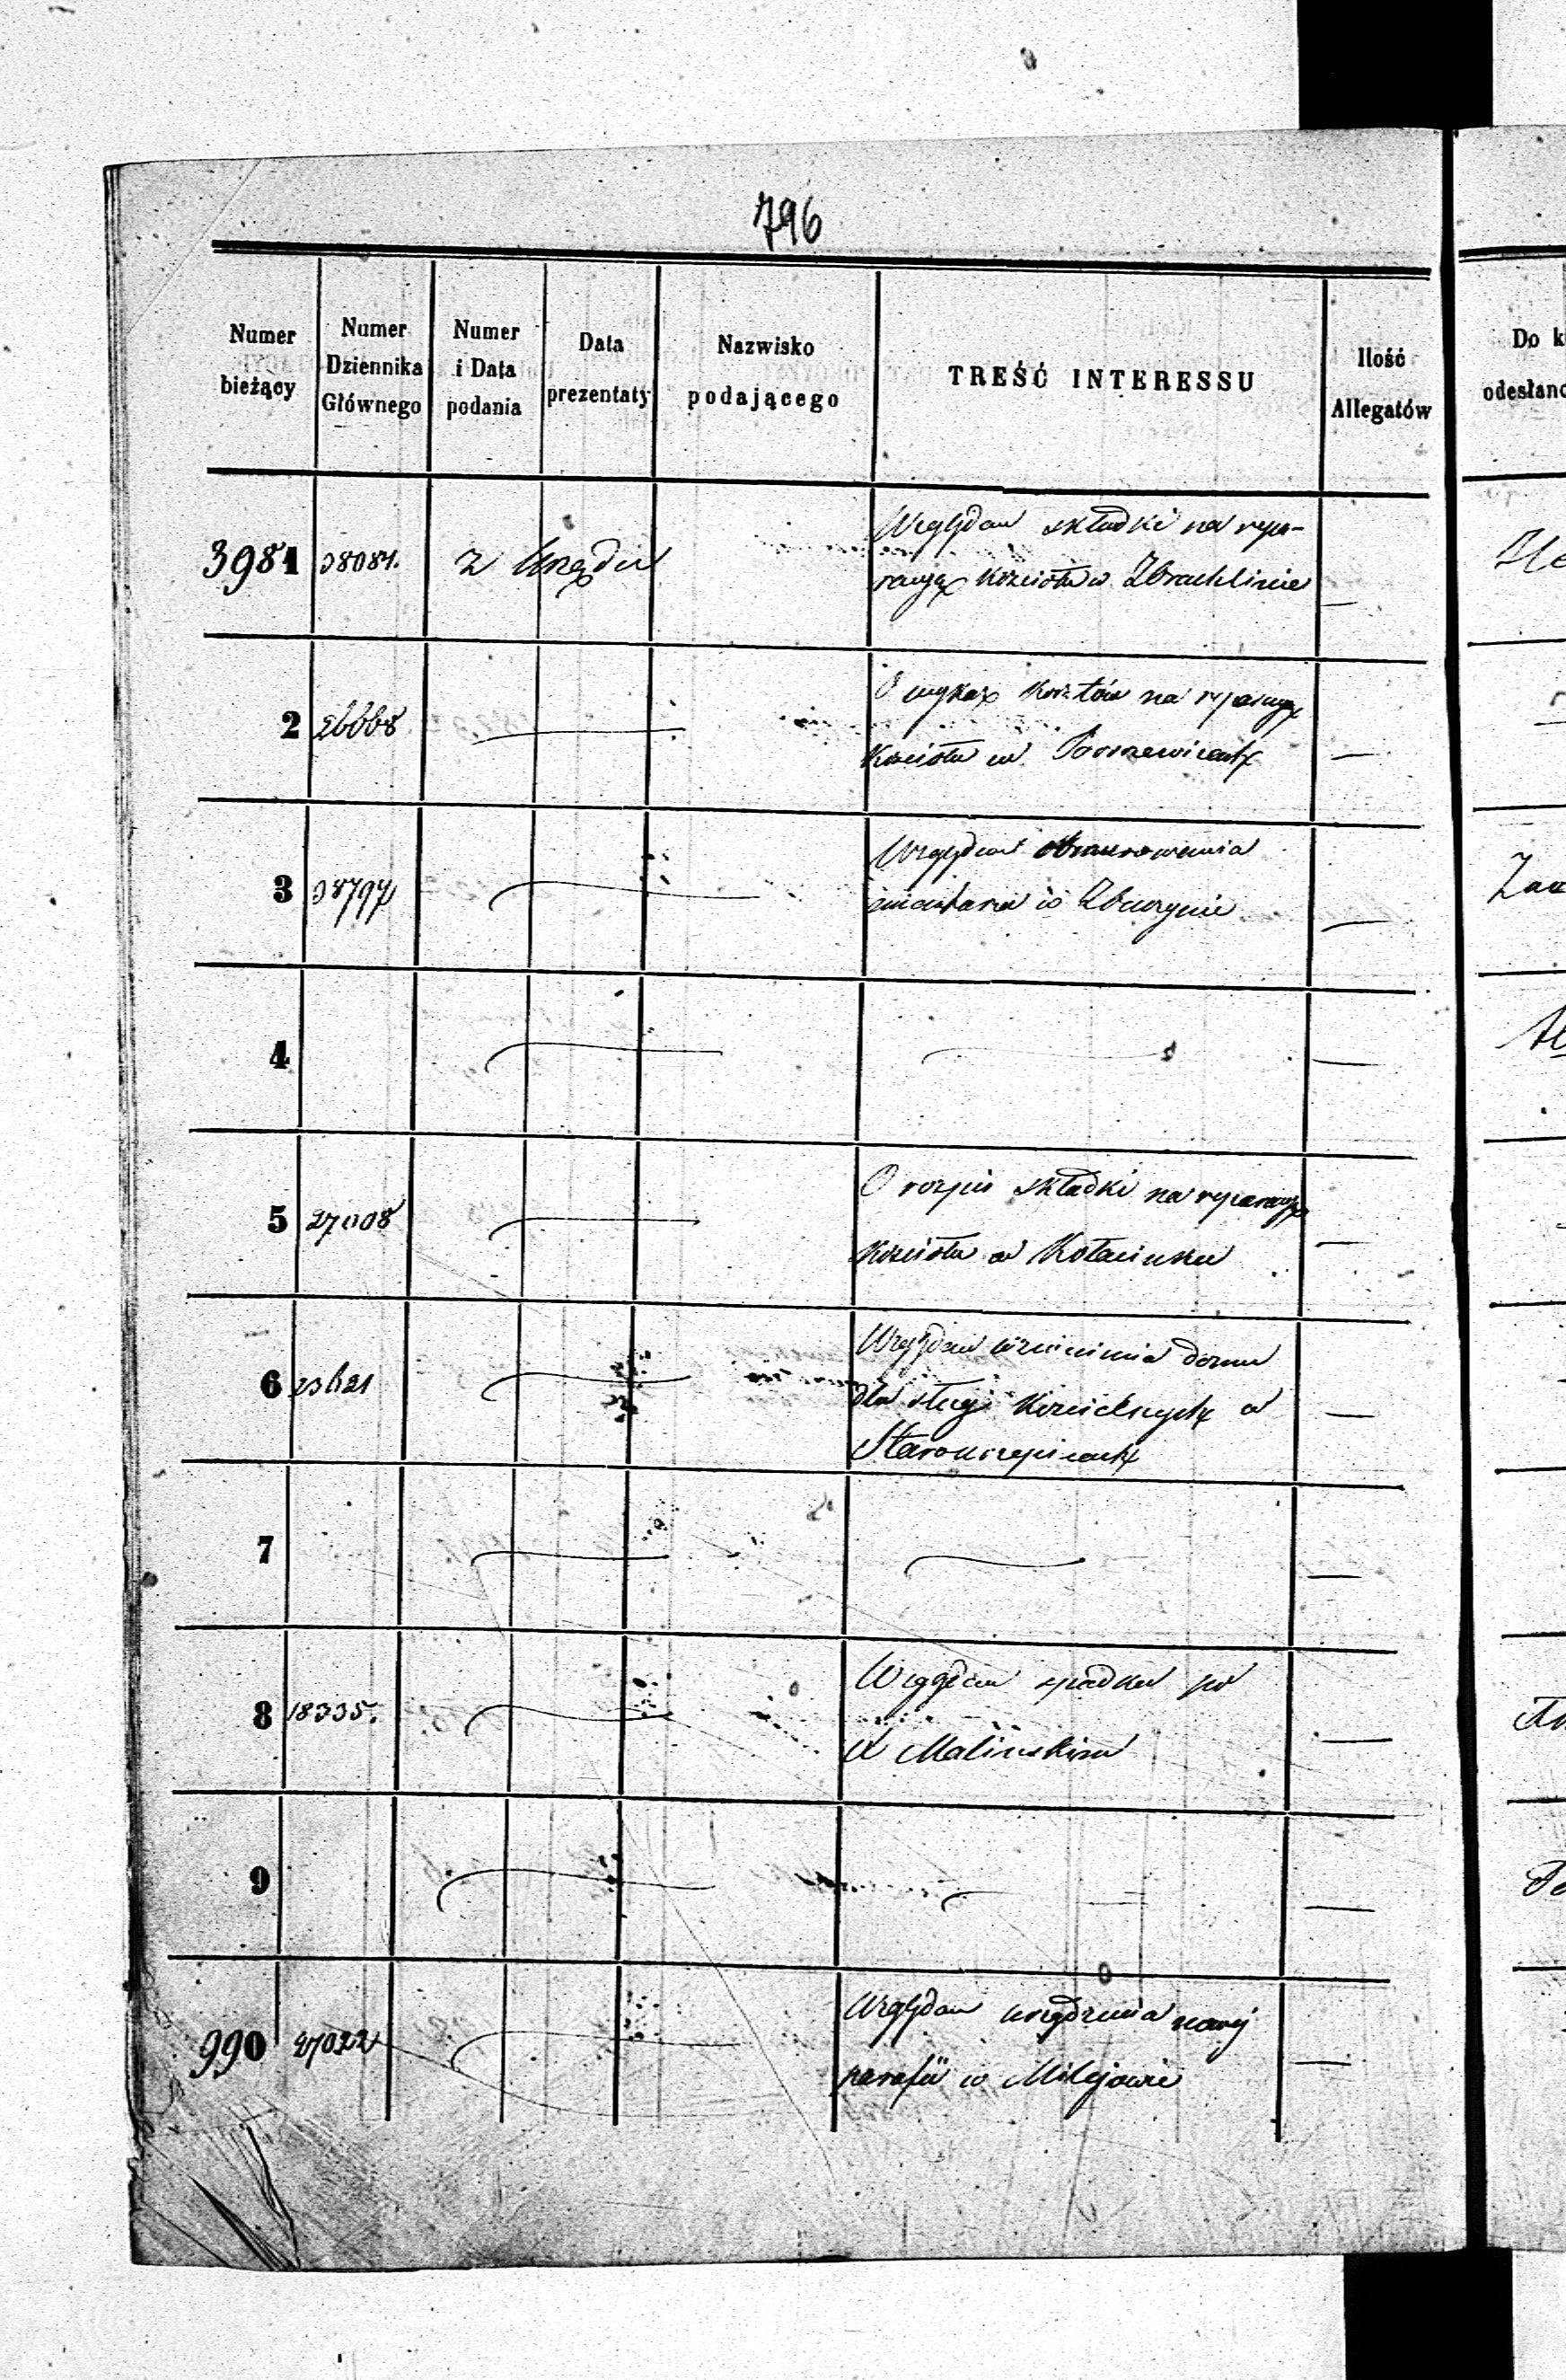 796
Numer bieżący
Numer Dziennika Głównego
Numer i Data podania
Data prezentaty
Nazwisko podającego
TREŚĆ INTERESSU
Ilość Allegatów
Do k
odesłano
3981 38084. z Urzędu Względem składki na repa-
racyą kościoła w Zbrachlinie —
2 26668 — O wykaz kosztów na reparacyą
kościoła w —
3 — Względem obmurowania
smentarza w —
4 — — —
5 27008 — O rozpis składki na reparacyą
kościoła w Kołacinku —
6 23621 — Względem wzniesienia domu
dla sług kościelnych w
Starokrzepicach —
7 — — —
8 18335. — Względem spadku po
X Malińskim —
9 — — —
990 27022 — Względem urządzenia nowej
parafii w Milejowie —